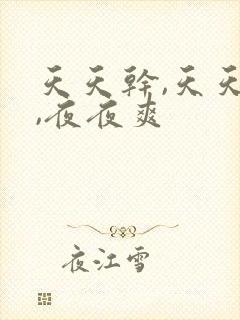 天天幹,天天
,夜夜爽
夜江雪